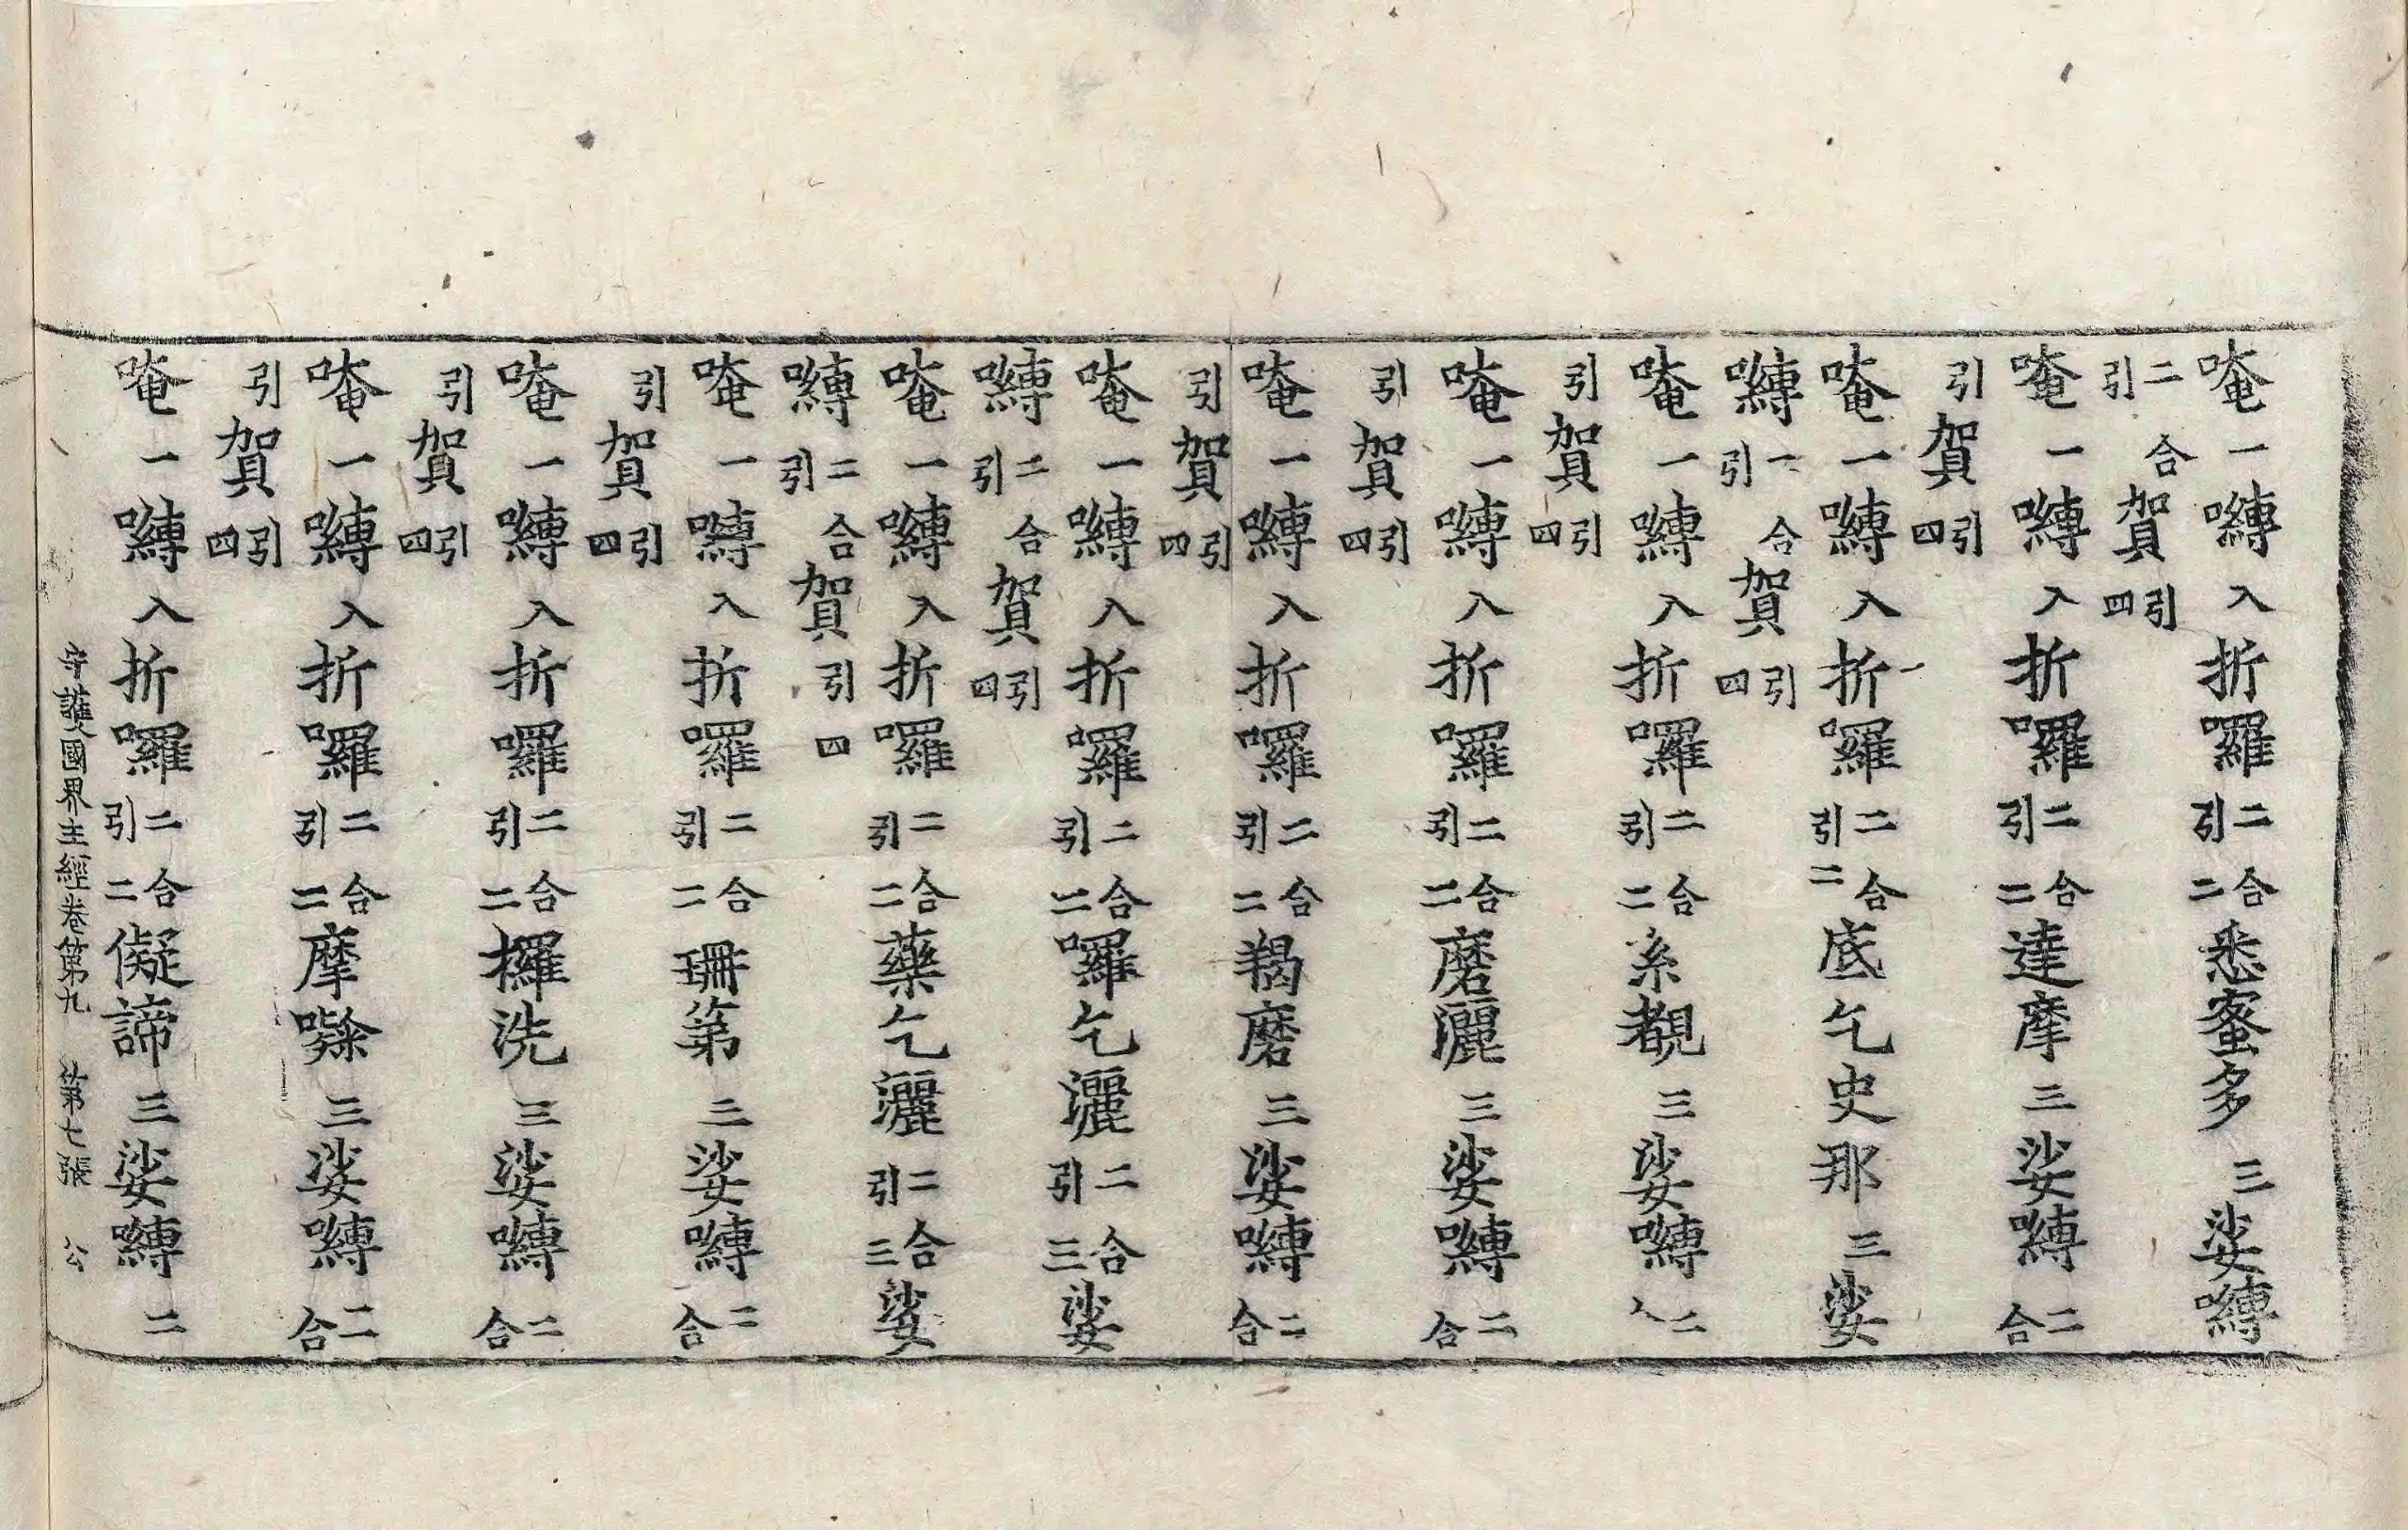 唵一嚩入折囉二合引二悉蜜多三娑嚩
二合引賀引四
唵一嚩入折囉二合引二達摩三娑嚩二合
引賀引四
唵一嚩入折囉二合引二底乞史那三娑
嚩二合引賀引四
唵一嚩入折囉二合引二系覩三娑嚩二
引賀引四
唵一嚩入折囉二合引二磨灑三娑嚩二合
引賀引四
唵一嚩入折囉二合引二羯磨三娑嚩二合
引賀引四
唵一嚩入折囉二合引二囉乞灑二合引三娑
嚩二合引賀引四
唵一嚩入折囉二合引二藥乞灑二合引三娑
嚩二合引賀引四
唵一嚩入折囉二合引二珊第三娑嚩二合
引賀引四
唵一嚩入折囉二合引二欏洗三娑嚩二合
引賀引四
唵一嚩入折囉二合引二摩㘑三娑嚩二合
引賀引四
唵一嚩入折囉二合引二儗諦三娑嚩二
守護國界主經卷第九 第七張 公